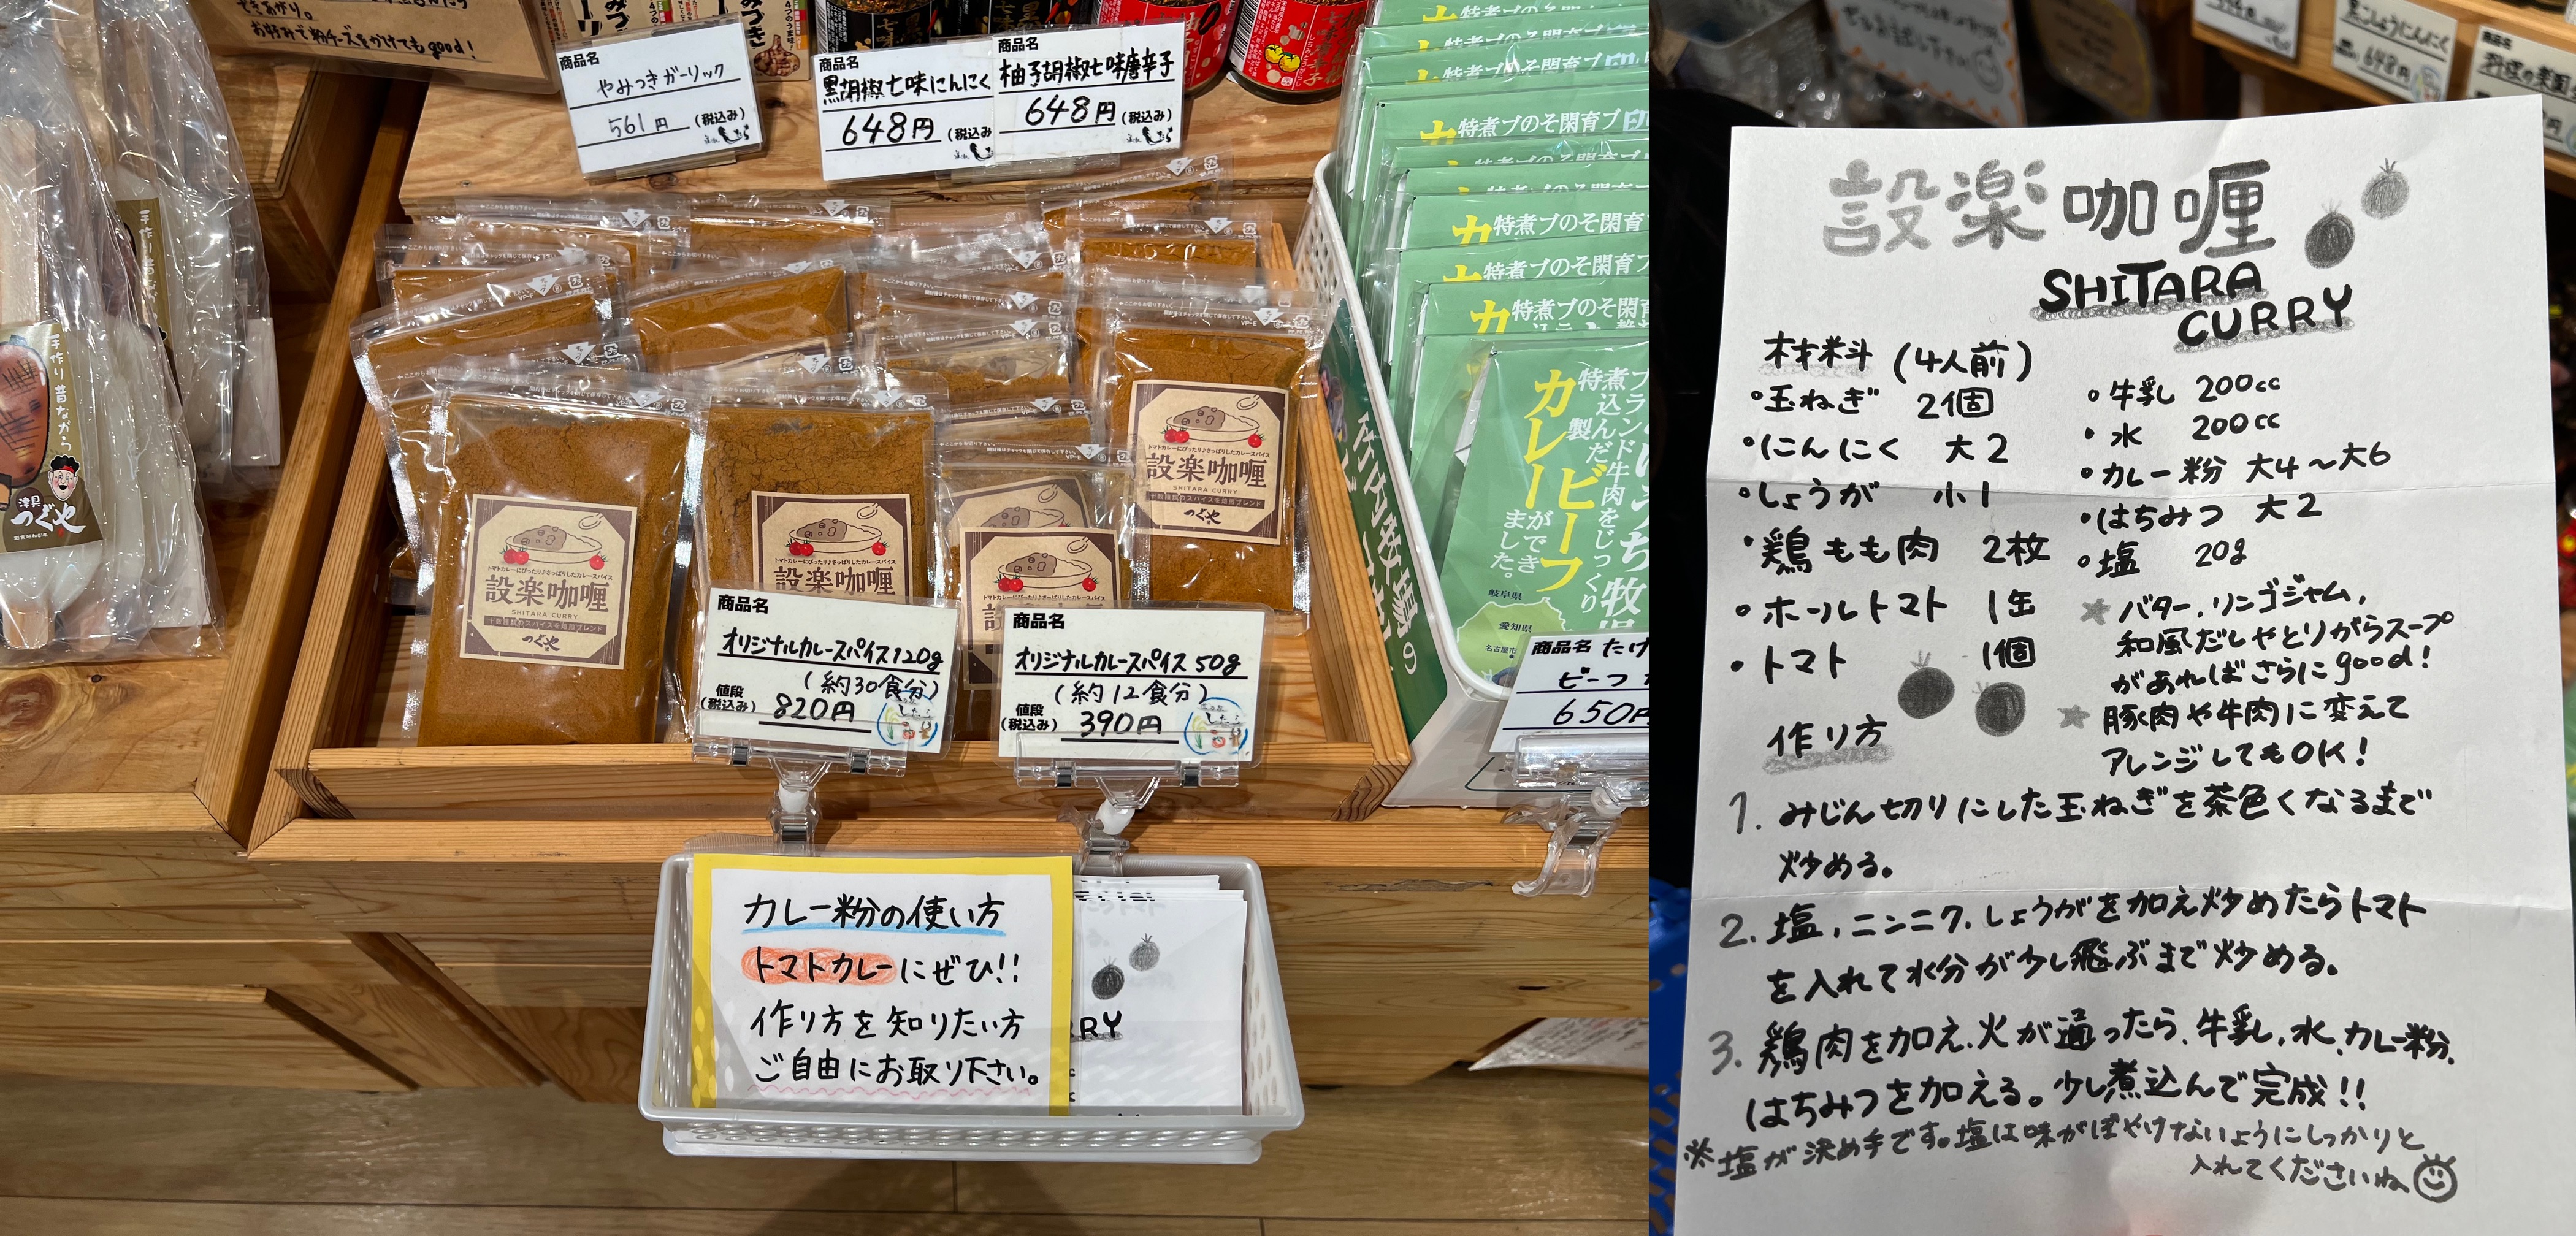 お好みで粉チーズをかけてもgood!
商品名
やみつきガーリック
561円 (税込み)
商品名
黒胡椒七味にんにく
648円 (税込み
商品名
柚子胡椒七味唐辛子
648円 (税込み)
手作り 昔ながら
津具
つぐや
トマトカレーにぴったり♪さっぱりしたカレースパイス
設楽咖喱
SHITARA CURRY
十数種類のスパイスを焙煎ブレンド
つぐや
設楽咖喱
設楽咖喱
SHITARA CURRY
つぐや
商品名
オリジナルカレースパイス120g
(約30食分)
値段
(税込み) 820円
商品名
オリジナルカレースパイス 50g
(約12食分)
値段
(税込み) 390円
竹内牧場の
煮込んだ牛肉をじっくり
特製
ビーフ
カレー
ができ
ました。
岐阜県
愛知県
名古屋市
商品名 たけ
ビーフ
650円
カレー粉の使い方
トマトカレーにぜひ!!
作り方を知りたい方
ご自由にお取り下さい。
設楽咖喱
SHITARA
CURRY
材料 (4人前)
・玉ねぎ 2個
・にんにく 大2
・しょうが 小1
・鶏もも肉 2枚
・ホールトマト 1缶
・トマト 1個
・牛乳 200cc
・水 200cc
・カレー粉 大4〜大6
・はちみつ 大2
・塩 20g
★バター、リンゴジャム、
和風だしやとりがらスープ
があればさらにgood!
★豚肉や牛肉に変えて
アレンジしてもOK!
作り方
1. みじん切りにした玉ねぎを茶色くなるまで
炒める。
2. 塩、ニンニク、しょうがを加え炒めたらトマト
を入れて水分が少し飛ぶまで炒める。
3. 鶏肉を加え、火が通ったら、牛乳、水、カレー粉、
はちみつを加える。少し煮込んで完成!!
※塩が決め手です。塩は味がぼやけないようにしっかりと
入れてくださいね